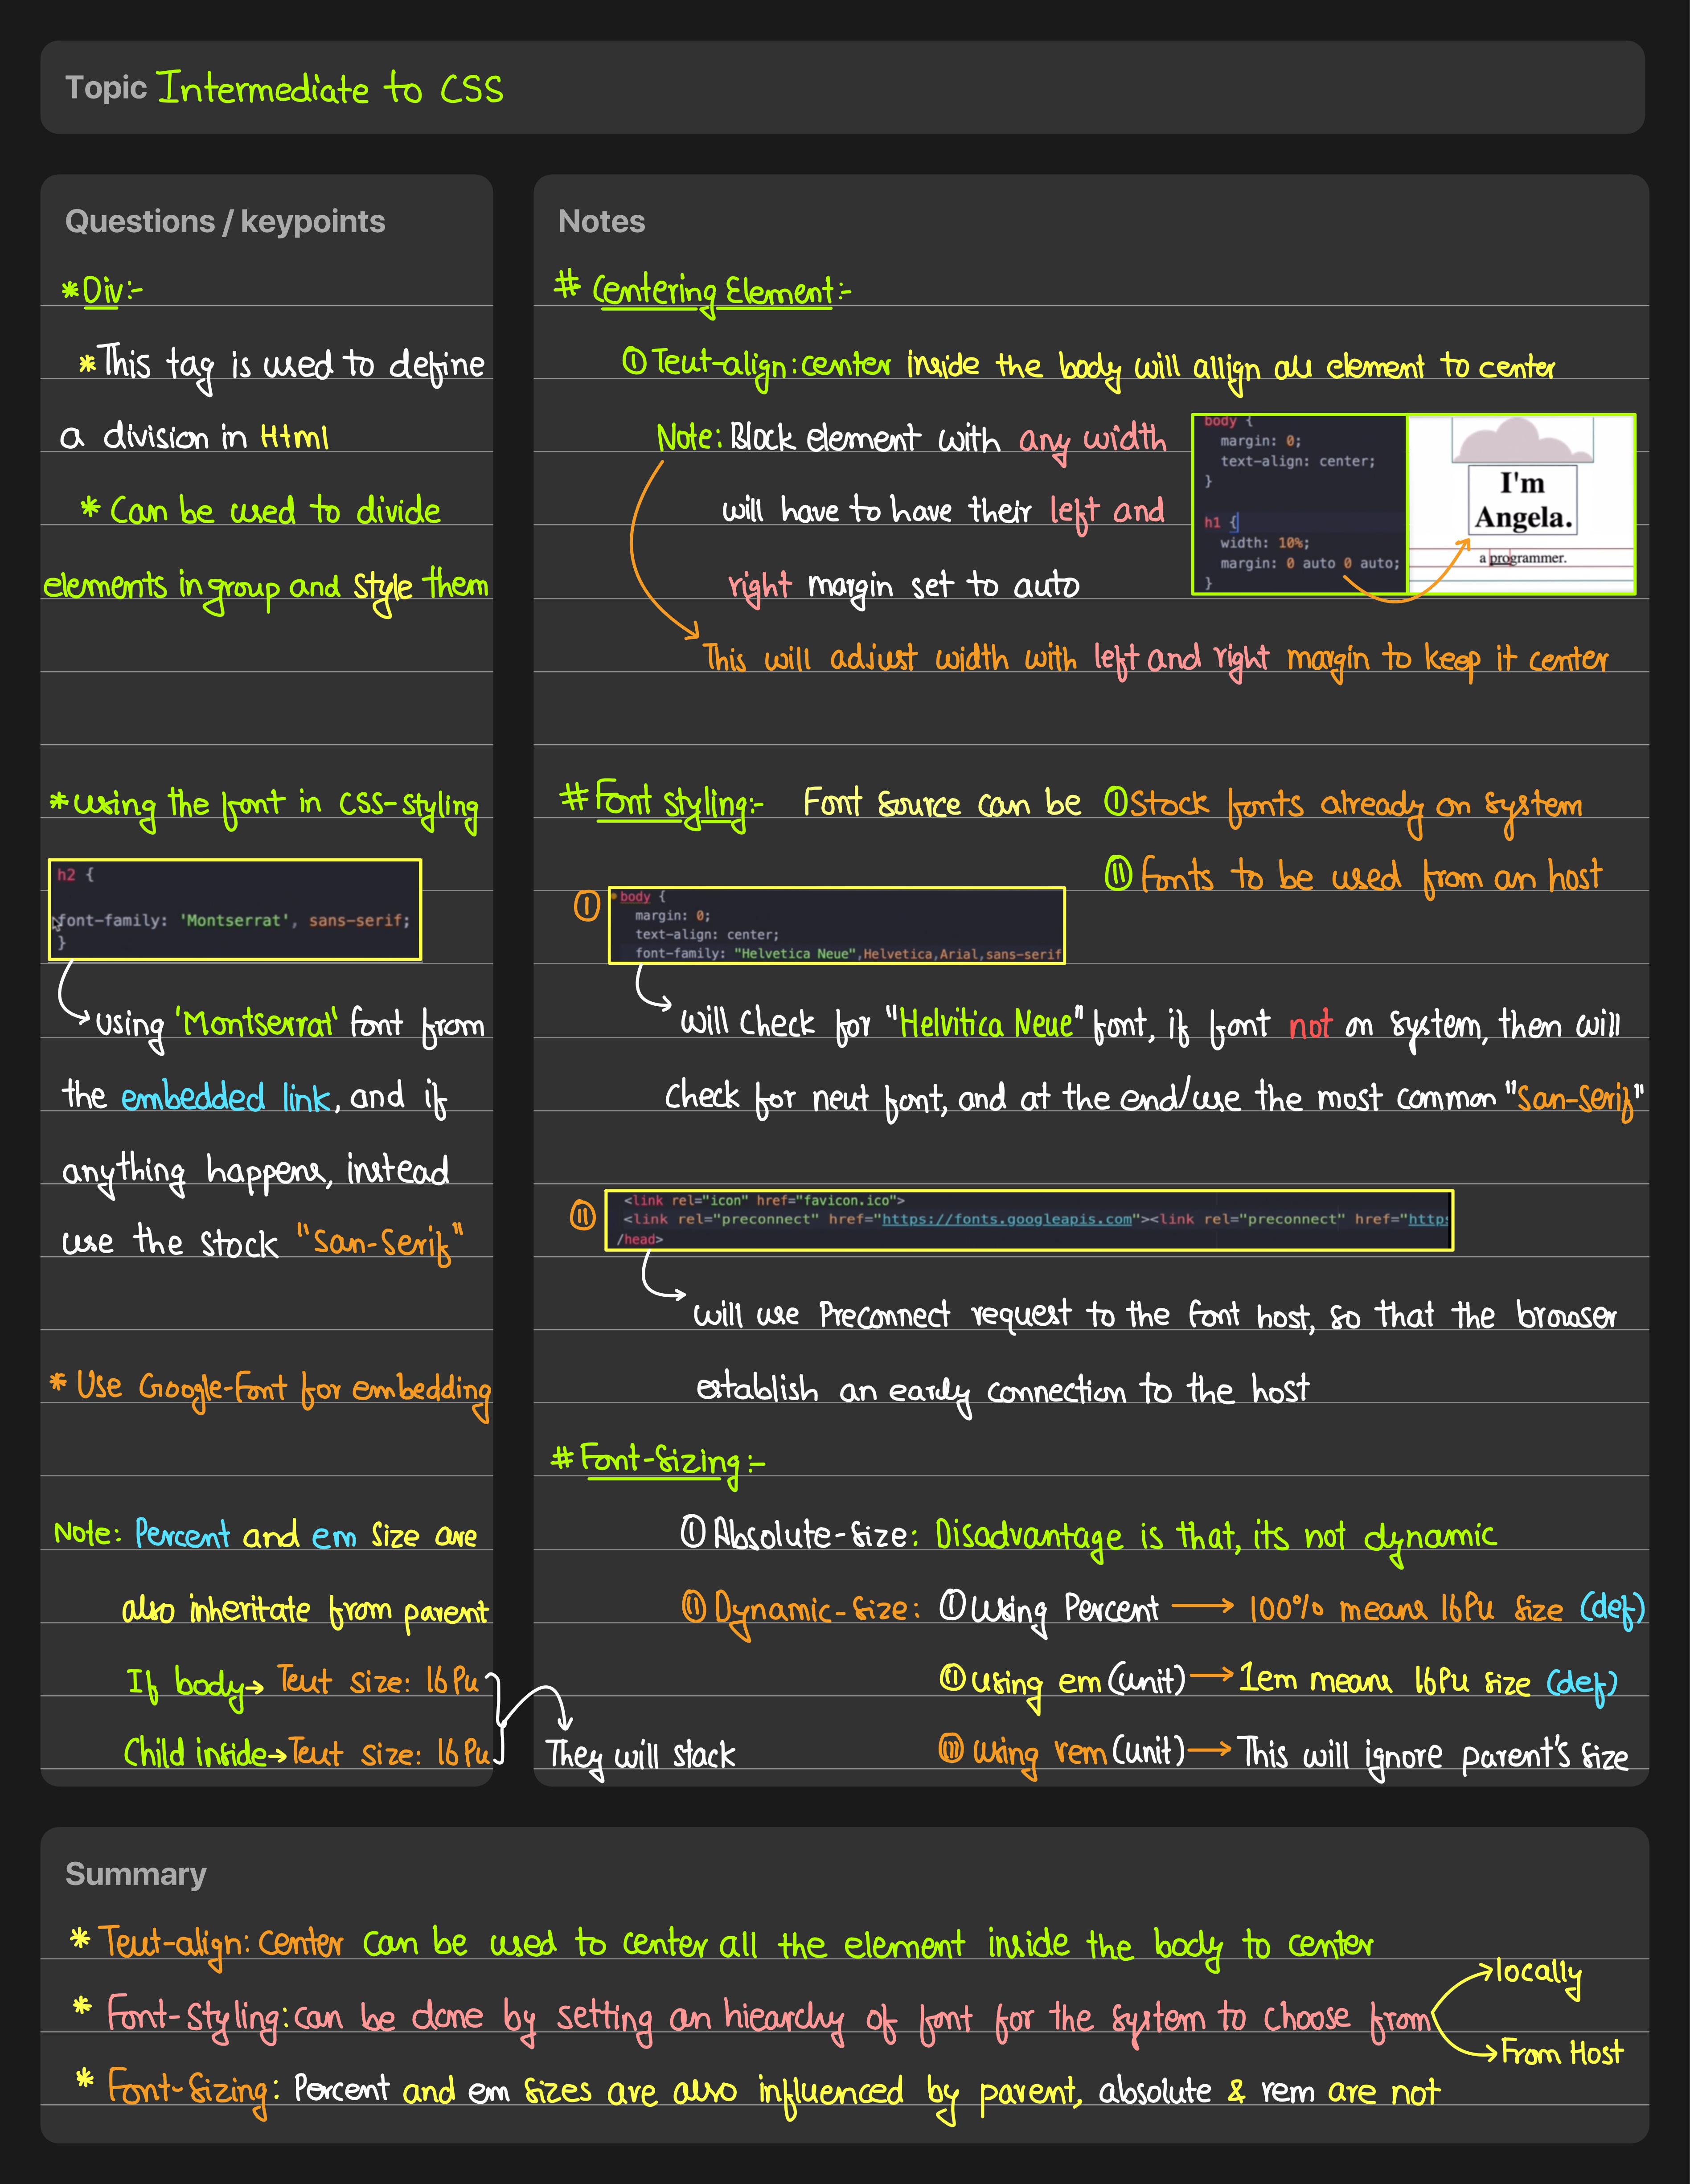 Topic Intermediate to CSS
Questions / keypoints
* Div:-
* This tag is used to define
a division in Html
* Can be used to divide
elements in group and Style them
* Using the font in CSS-styling
h2 {
font-family: 'Montserrat', sans-serif;
}
Using 'Montserrat' font from
the embedded link, and if
anything happens, instead
use the stock "San-Serif"
* Use Google-Font for embedding
Note: Percent and em size are
also inheritate from parent
If body → Text size: 16Px
Child inside → Text size: 16Px
Notes
# Centering Element:-
① Text-align: center inside the body will allign all element to center
Note: Block element with any width
will have to have their left and
right margin set to auto
body {
margin: 0;
text-align: center;
}
h1 {
width: 10%;
margin: 0 auto 0 auto;
}
I'm
Angela.
a programmer.
This will adjust width with left and right margin to keep it center
# Font styling:- Font source can be ① Stock fonts already on system
② Fonts to be used from an host
①
body {
margin: 0;
text-align: center;
font-family: "Helvetica Neue",Helvetica,Arial,sans-serif
will check for "Helvitica Neue" font, if font not on system, then will
check for next font, and at the end/use the most common "San-Serif"
②
<link rel="icon" href="favicon.ico">
<link rel="preconnect" href="https://fonts.googleapis.com"><link rel="preconnect" href="https
/head>
will use Preconnect request to the font host, so that the browser
establish an early connection to the host
# Font-Sizing:-
① Absolute-size: Disadvantage is that, its not dynamic
② Dynamic-size: ① Using Percent → 100% means 16Px size (def)
② Using em (unit) → 1em means 16Px size (def)
They will stack
③ Using rem (unit) → This will ignore parent's size
Summary
* Text-align: center can be used to center all the element inside the body to center
* Font-Styling: can be done by setting an hiearchy of font for the system to choose from
locally
From Host
* Font-Sizing: Percent and em sizes are also influenced by parent, absolute & rem are not